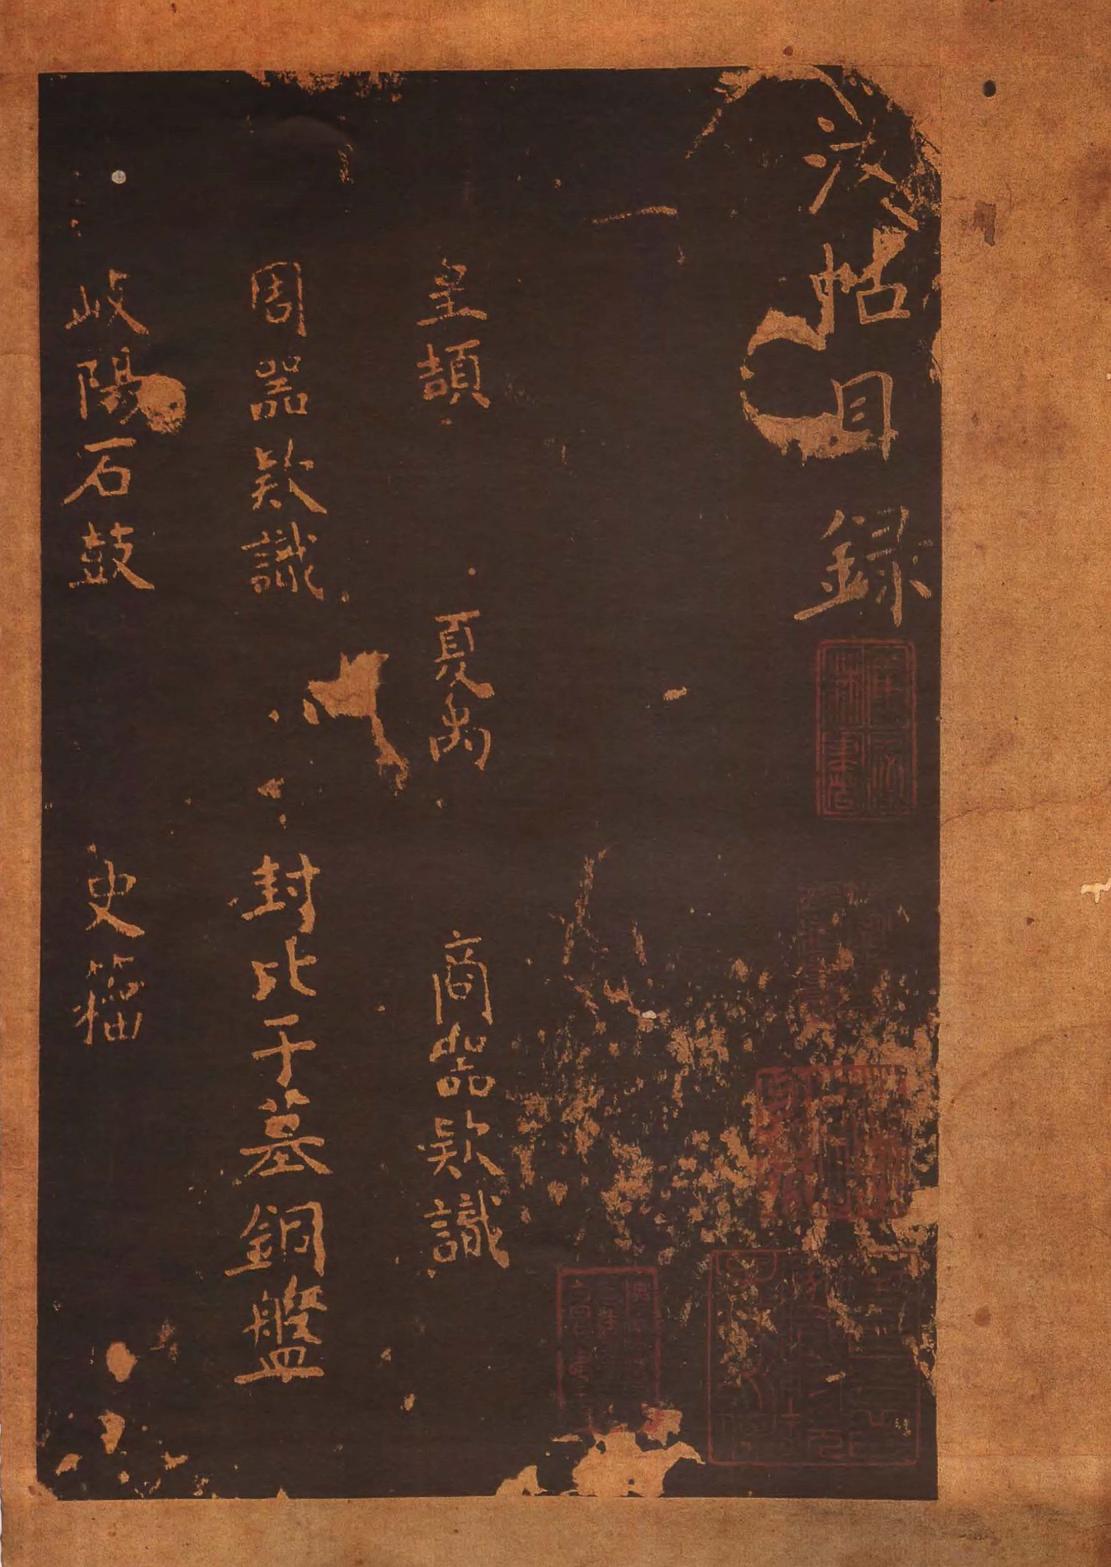 汝帖目録
一
皇頡 夏禹 商器欵識
周器欵識 封比干墓銅盤
岐陽石鼓 史籀